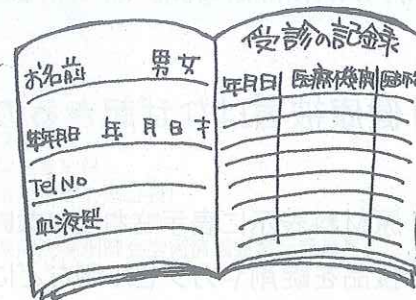 お名前 男女
生年月日 年 月 日 才
Tel No
血液型
受診の記録
年月日 医療機関